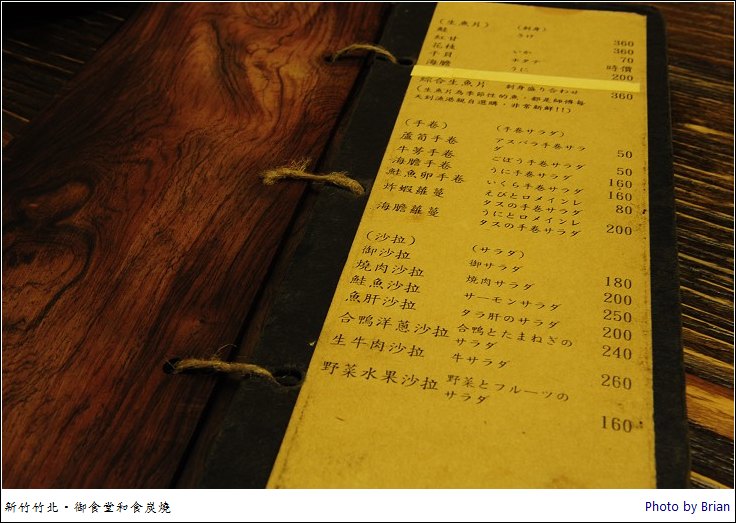 (生魚片) (刺身)
鮭 さけ 360
紅甘 360
花枝 いか 70
干貝 ホタテ 時價
海膽 うに 200
綜合生魚片 刺身盛り合わせ 360
(生魚片為季節性的魚,都是師傅每
天到漁港親自選購,非常新鮮!!)
(手卷) (手卷サラダ)
蘆筍手卷 アスパラ手卷サラダ 50
牛蒡手卷 ごぼう手卷サラダ 50
海膽手卷 うに手卷サラダ 160
鮭魚卵手卷 いくら手卷サラダ 160
炸蝦蘿蔓 えびとロメインレタスの手卷サラダ 80
海膽蘿蔓 うにとロメインレタスの手卷サラダ 200
(沙拉) (サラダ)
御沙拉 御サラダ 180
燒肉沙拉 燒肉サラダ 200
鮭魚沙拉 サーモンサラダ 250
魚肝沙拉 タラ肝のサラダ 200
合鴨洋蔥沙拉 合鴨とたまねぎのサラダ 240
生牛肉沙拉 牛サラダ 260
野菜水果沙拉 野菜とフルーツのサラダ 160
新竹竹北・御食堂和食炭燒
Photo by Brian